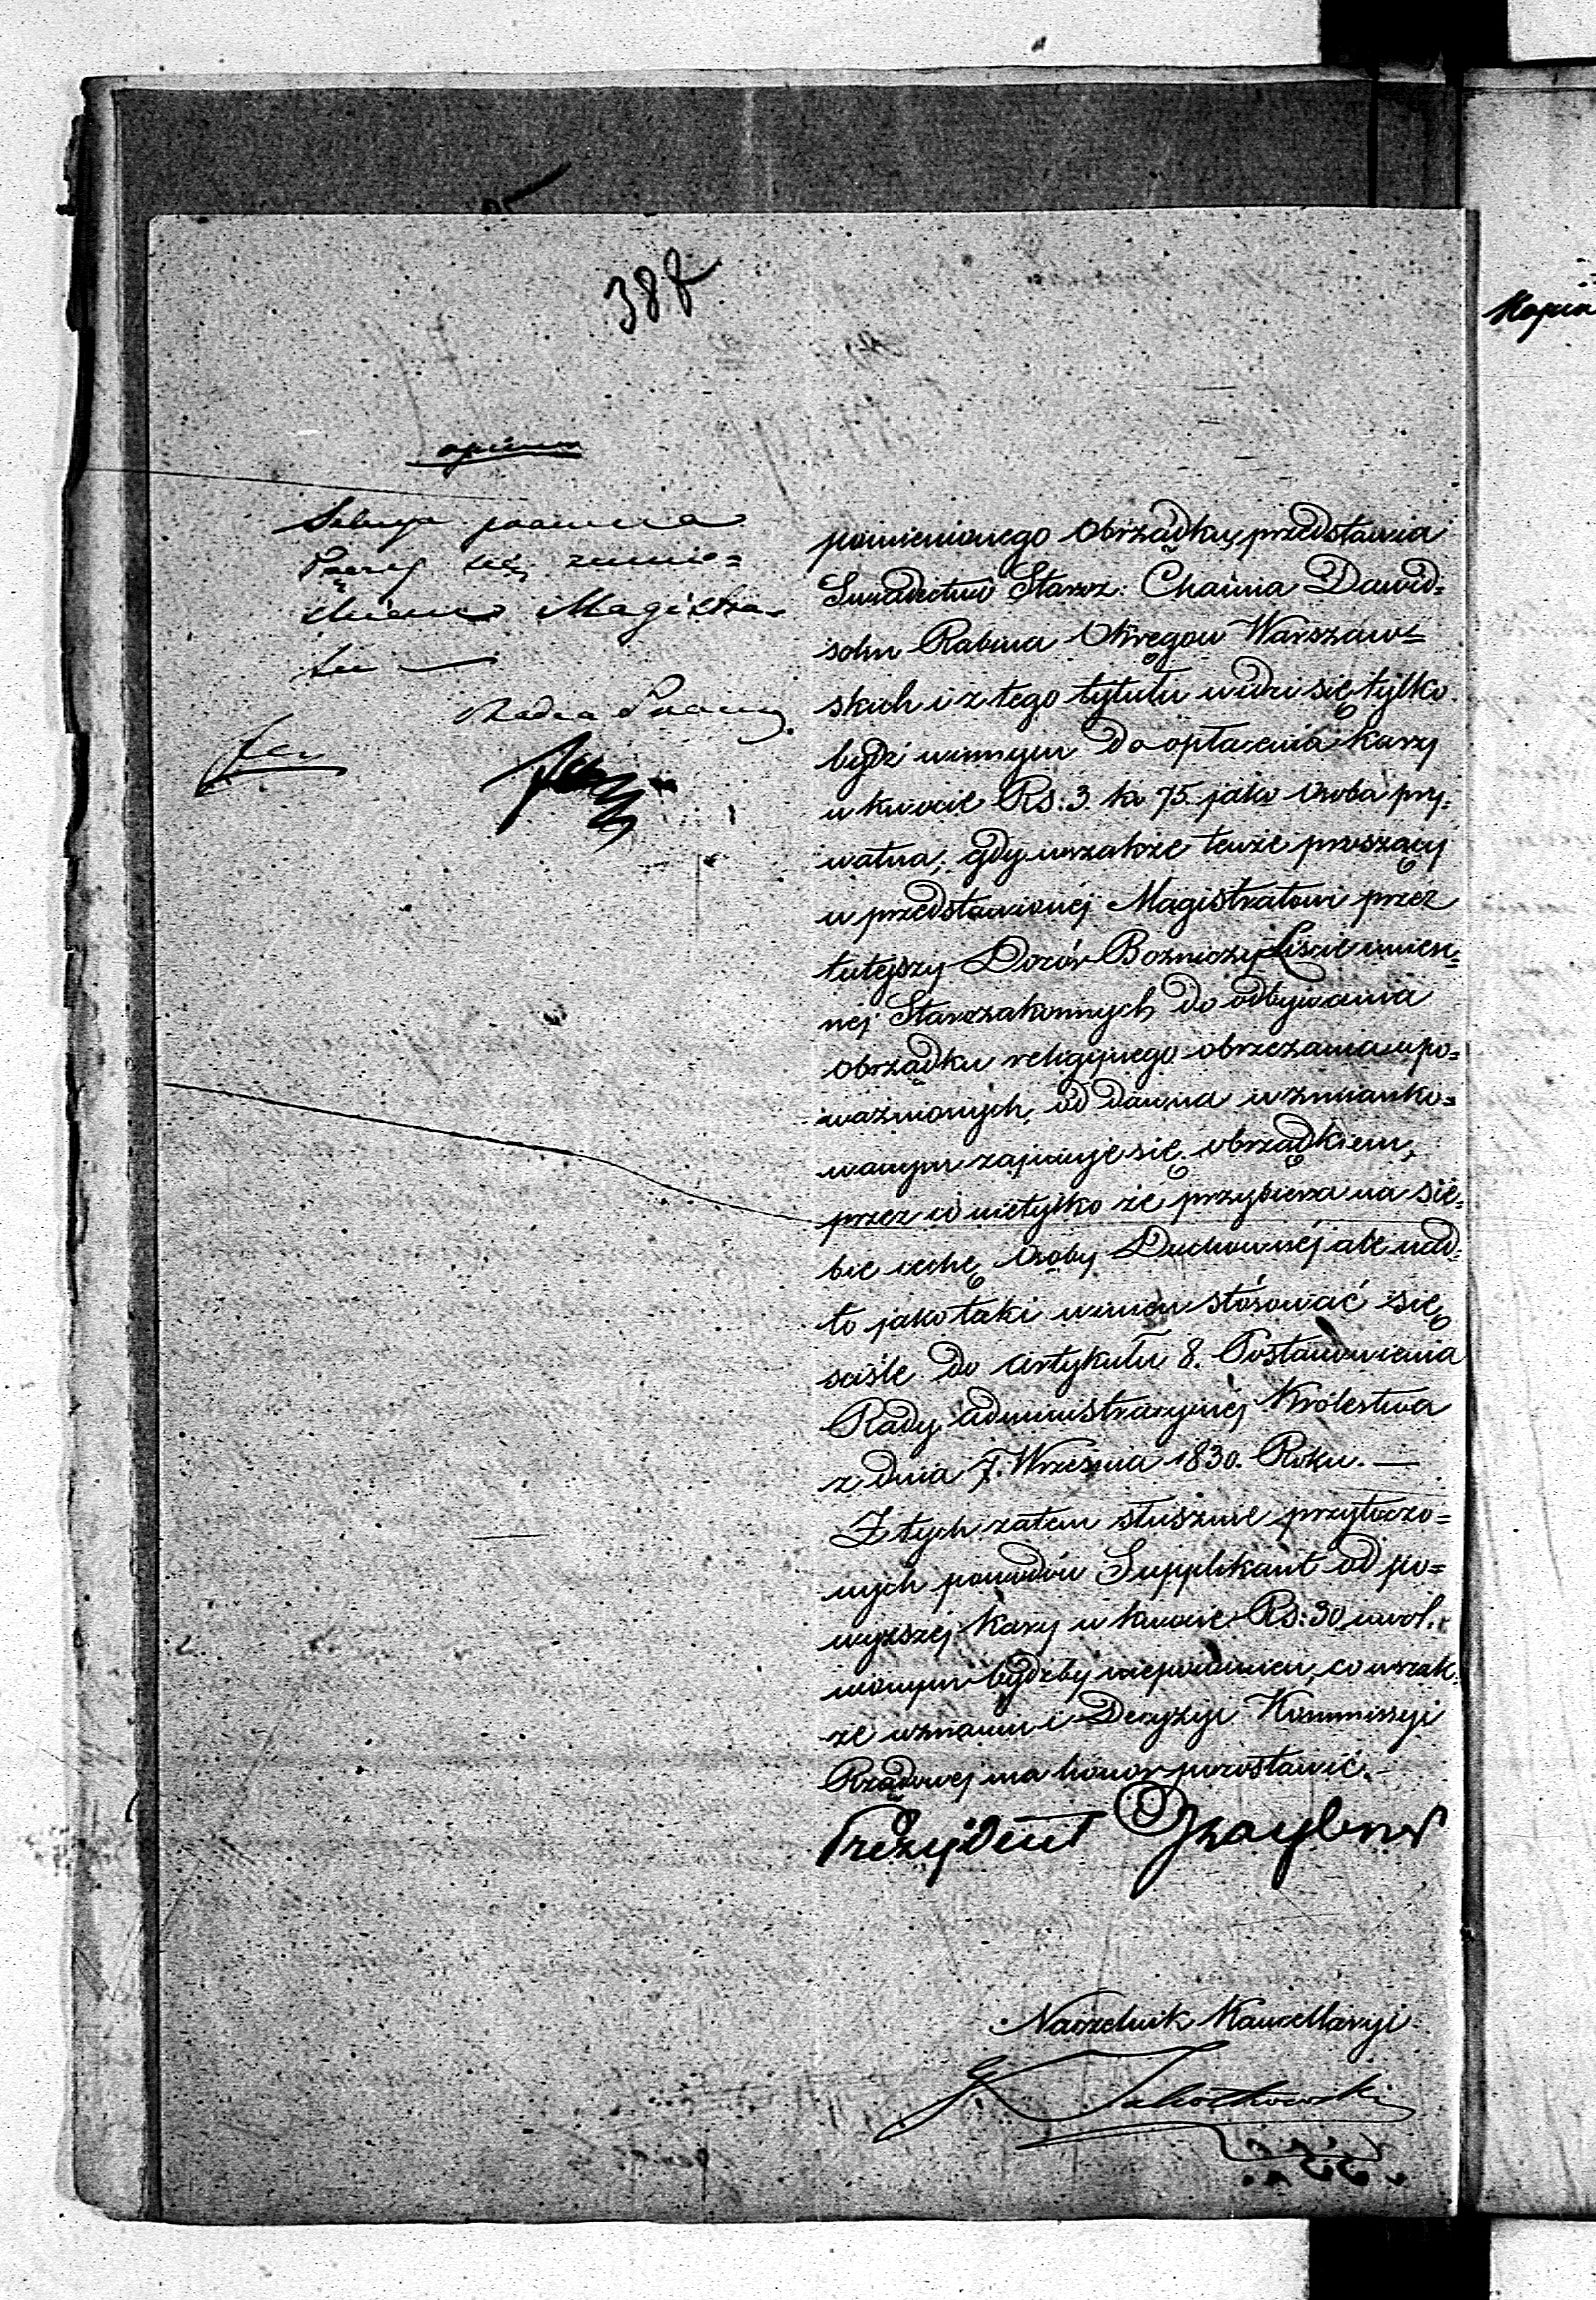 388
opinia
Sekcya prawna
łączy się z wnio=
skiem Magistra=
tu —
Radca Prawny
pomienionego Obrządku, przedstawia
Swiadectwo Staroz: Chaima Dawid=
sohn Rabina Okręgów Warszaw=
skich i z tego tytułu widzi się tylko
bydź winnym do opłacenia kary
w kwocie Rs: 3 k. 75. jako Osoba pry=
watna; gdy wszakże tenże proszący
w przedstawionéj Magistratowi przez
tutejszy Dozór Bożniczy Liście imien=
néj Starozakonnych do odbywania
obrządku religijnego obrzezania upo=
ważnionych, od dawna wzmianko=
wanym zajmuje się obrządkiem,
przez co nietylko że przybiera na sie=
bie cechę Osoby Duchownéj ale nad=
to jako taki winien stósować się
ściśle do Artykułu 8. Postanowienia
Rady Administracyjnéj Królestwa
z dnia 7. Września 1830. Roku. —
Z tych zatem słusznie przytoczo=
nych powodów Supplikant od po=
wyższéj kary w kwocie Rs: 30 uwol=
nionym bydźby niepowinien, co wszak=
że uznaniu i Decyzyi Kommissyi
Rządowej ma honor pozostawić. —
Prezydent
Naczelnik Kancellaryi
Kopia